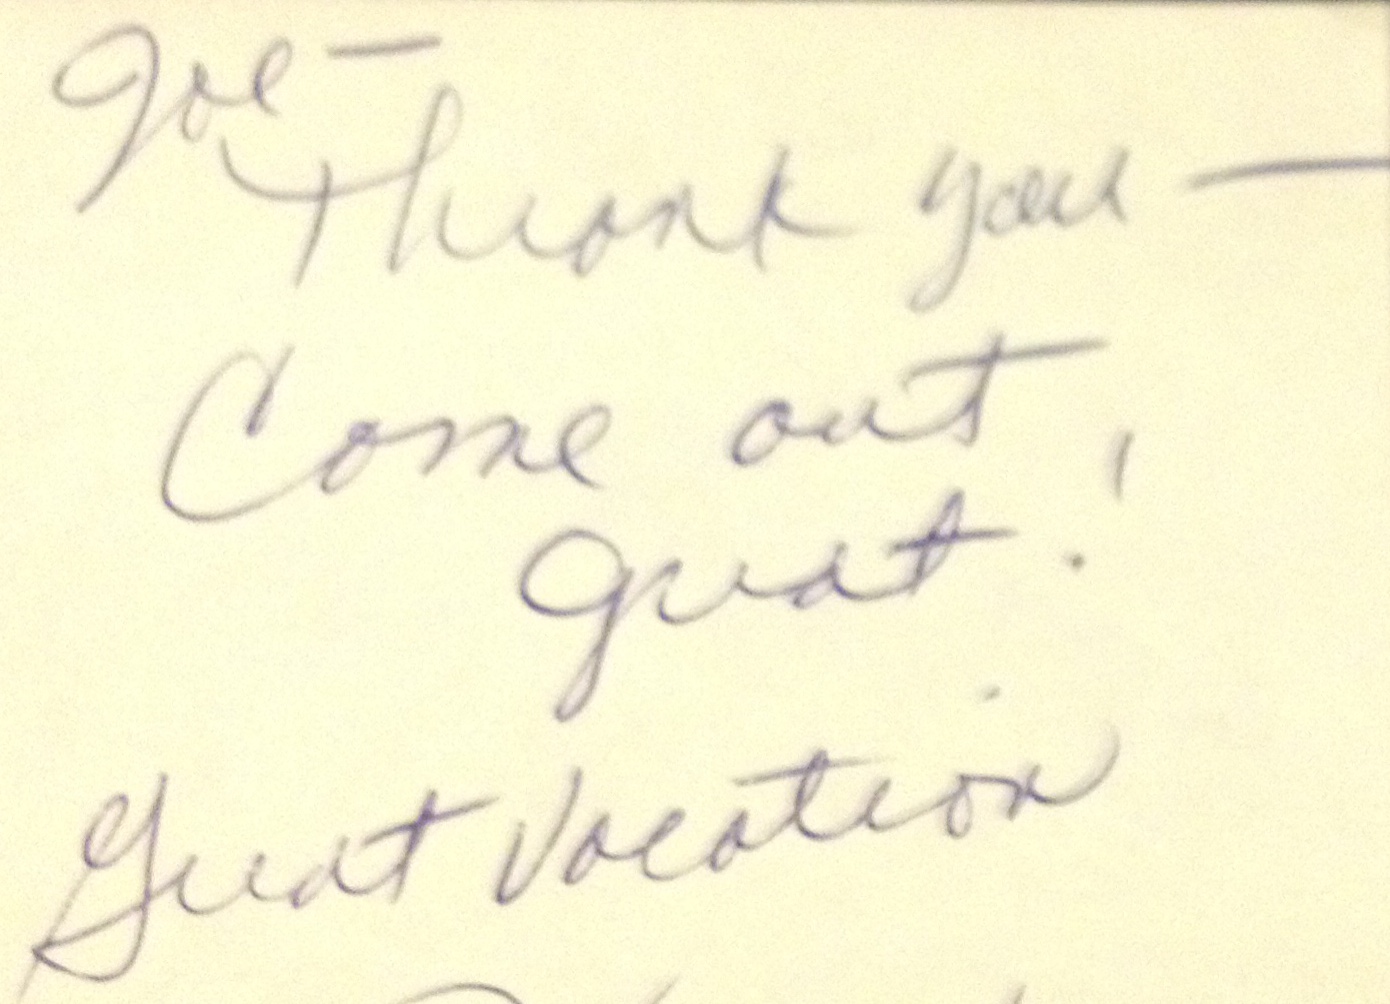 Joe —
Thank you —
Come out
great!
Great Vacation